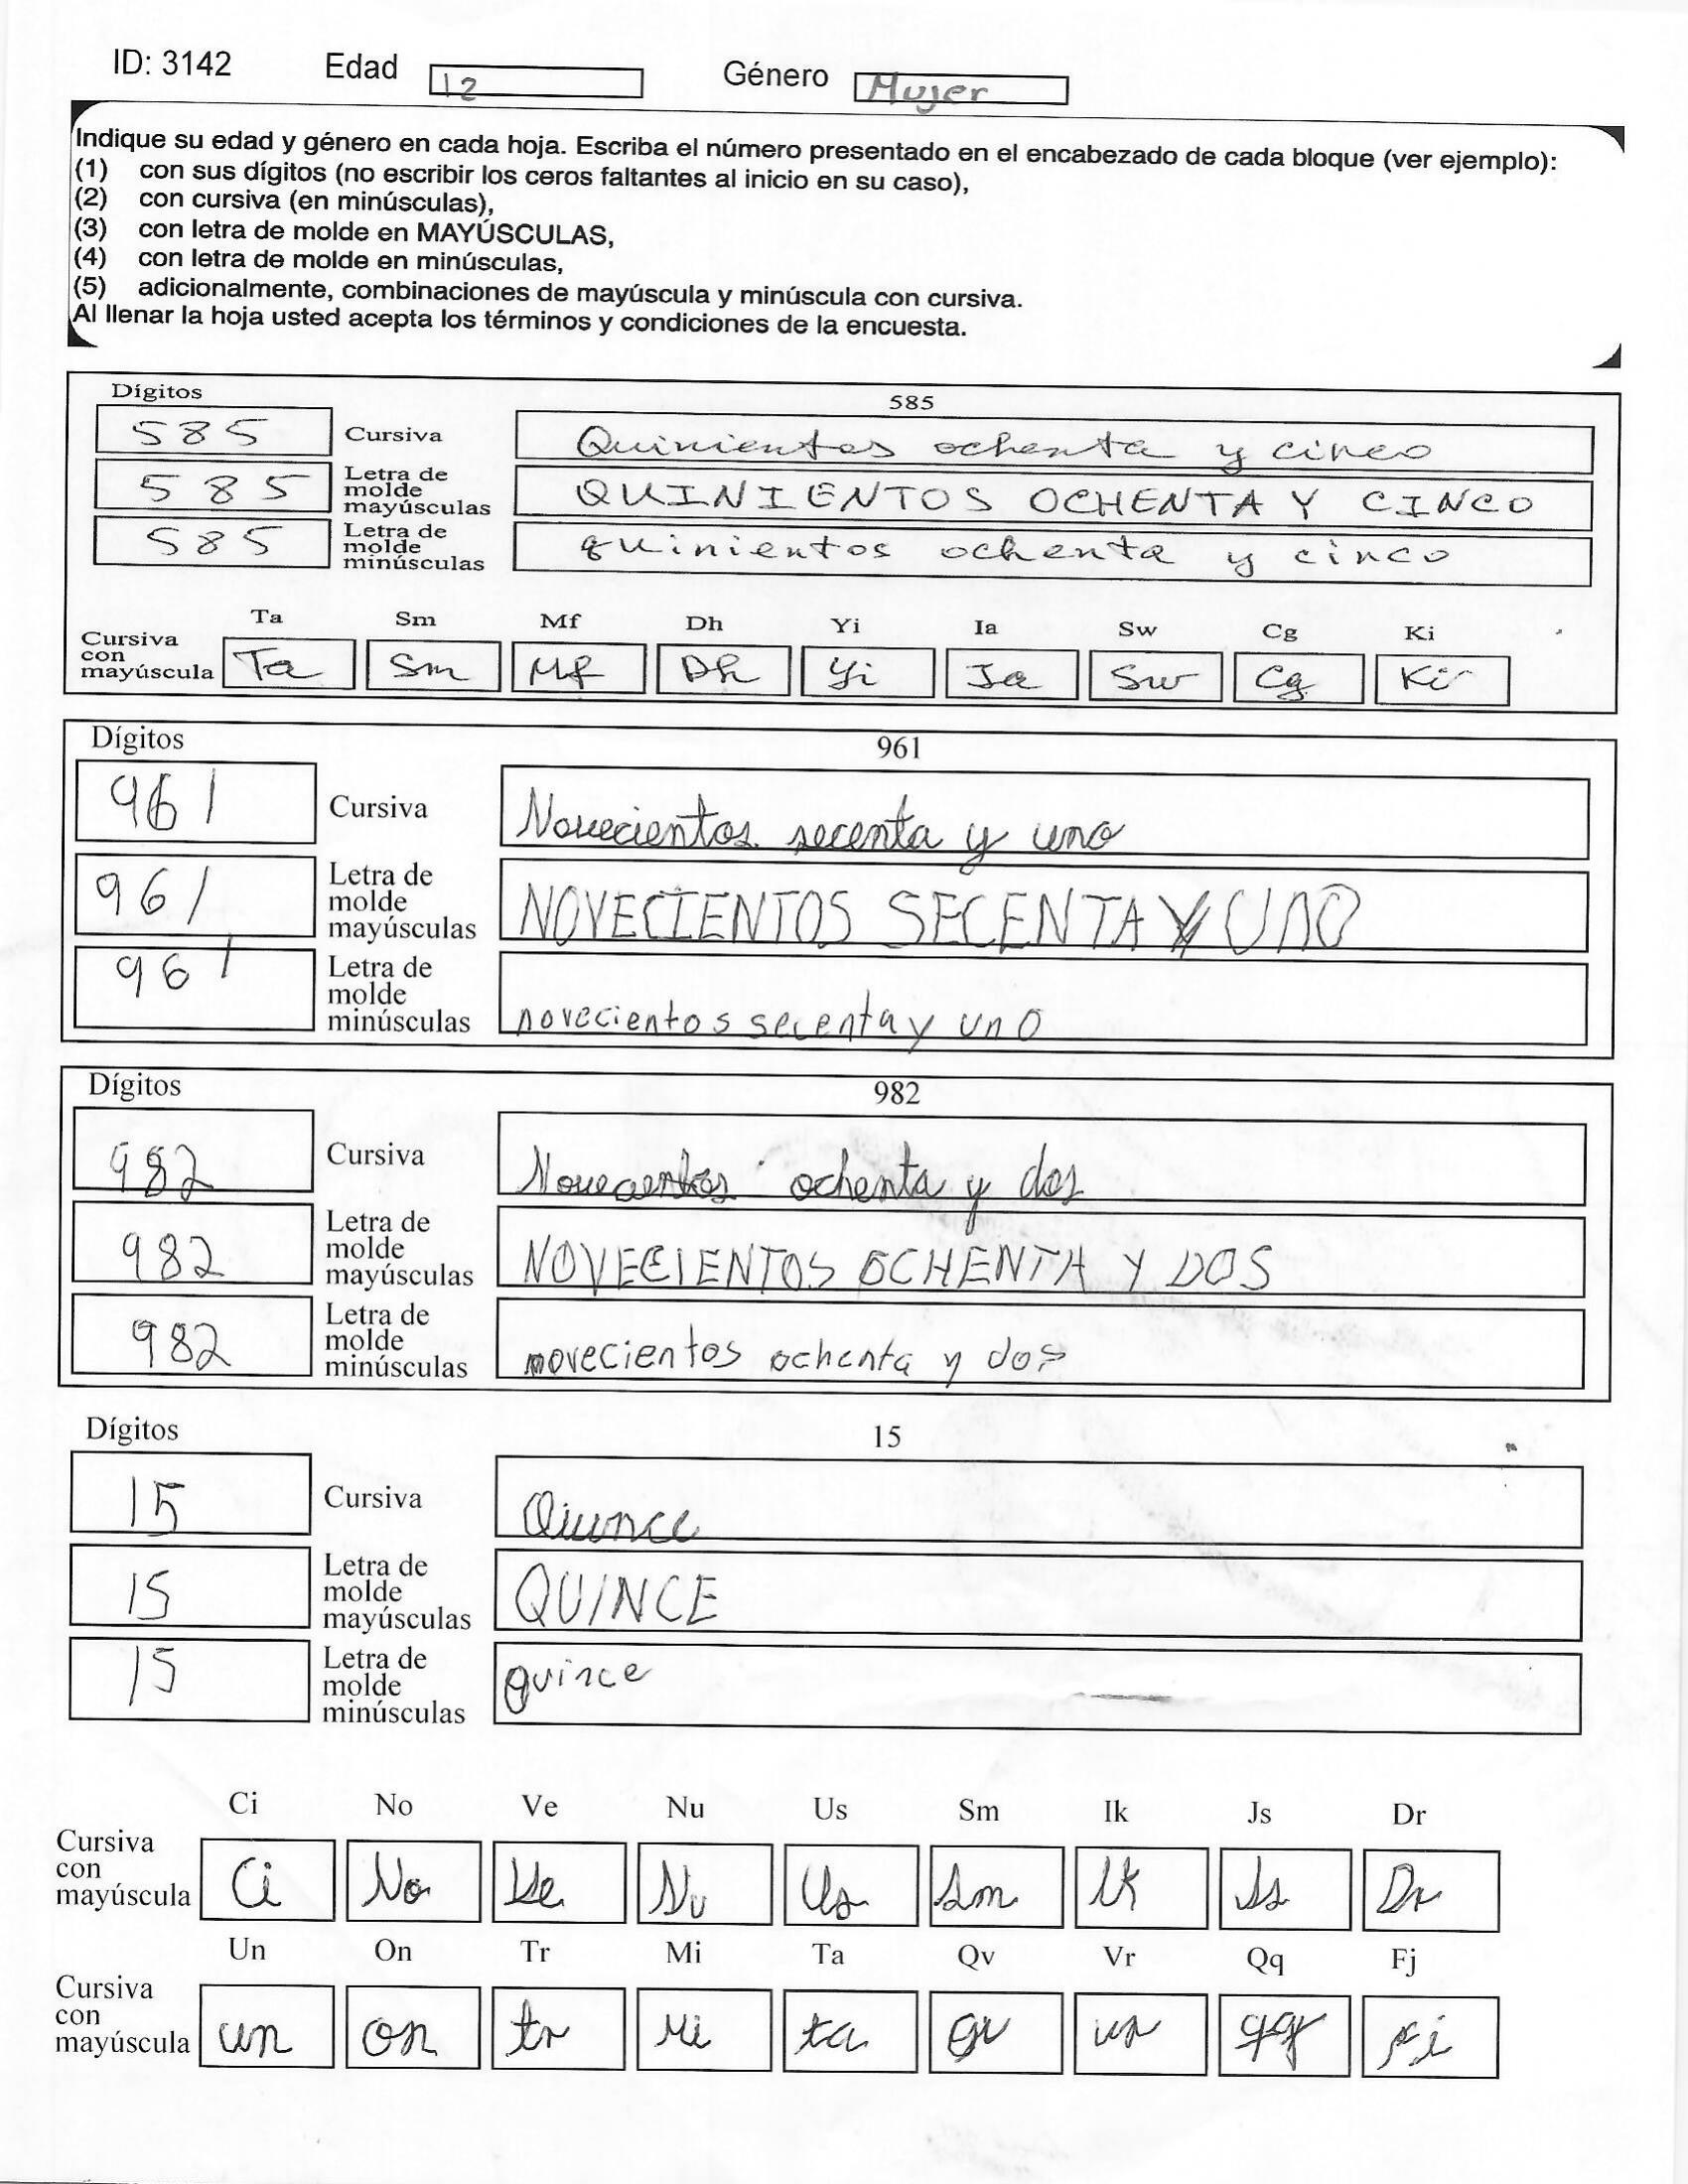 ID: 3142 Edad 12 Género Mujer
Indique su edad y género en cada hoja. Escriba el número presentado en el encabezado de cada bloque (ver ejemplo):
(1) con sus dígitos (no escribir los ceros faltantes al inicio en su caso),
(2) con cursiva (en minúsculas),
(3) con letra de molde en MAYÚSCULAS,
(4) con letra de molde en minúsculas,
(5) adicionalmente, combinaciones de mayúscula y minúscula con cursiva.
Al llenar la hoja usted acepta los términos y condiciones de la encuesta.
Dígitos 585
585 Cursiva Quinientos ochenta y cinco
585 Letra de molde mayúsculas QUINIENTOS OCHENTA Y CINCO
585 Letra de molde minúsculas quinientos ochenta y cinco
Ta Sm Mf Dh Yi Ia Sw Cg Ki
Cursiva con mayúscula Ta Sm Mf Dh Yi Ia Sw Cg Ki
Dígitos 961
961 Cursiva Novecientos secenta y uno
961 Letra de molde mayúsculas NOVECIENTOS SECENTA Y UNO
961 Letra de molde minúsculas novecientos secenta y uno
Dígitos 982
982 Cursiva Novecientos ochenta y dos
982 Letra de molde mayúsculas NOVECIENTOS OCHENTA Y DOS
982 Letra de molde minúsculas novecientos ochenta y dos
Dígitos 15
15 Cursiva Quince
15 Letra de molde mayúsculas QUINCE
15 Letra de molde minúsculas quince
Ci No Ve Nu Us Sm Ik Js Dr
Cursiva con mayúscula Ci No Ve Nu Us Sm Ik Js Dr
Un On Tr Mi Ta Qv Vr Qq Fj
Cursiva con mayúscula un on tr Mi ta qv vr qq fj